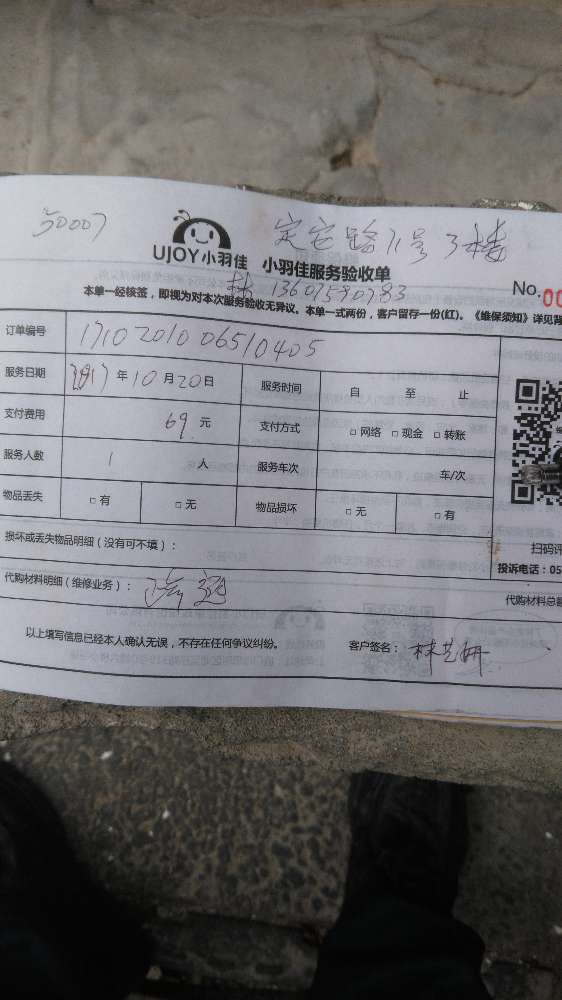 50007
定安路11号3楼
UJOY小羽佳 小羽佳服务验收单
林 13607590783
No.00
本单一经核签，即视为对本次服务验收无异议。本单一式两份，客户留存一份(红)。《维保须知》详见背
订单编号 1710201006510405
服务日期 2017 年 10 月 20 日 服务时间 自 至 止
支付费用 69 元 支付方式 □ 网络 □ 现金 □ 转账
服务人数 1 人 服务车次 年/次
物品丢失 □ 有 □ 无 物品损坏 □ 无 □ 有
损坏或丢失物品明细（没有可不填）：
扫码评
投诉电话：05
代购材料明细（维修业务）： 疏通
代购材料总额
以上填写信息已经本人确认无误，不存在任何争议纠纷。 客户签名： 林艺妍